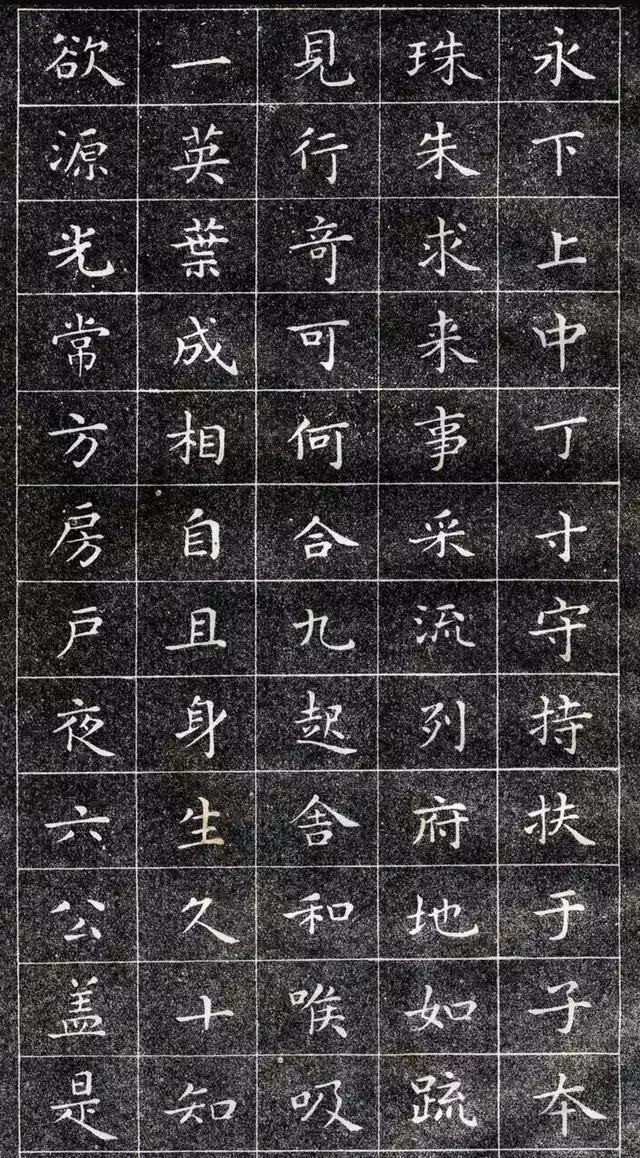 永下上中丁寸守持扶于子本
珠朱求来事采流列府地如䟽
見行竒可何合九起舍和喉吸
一英葉成相自且身生久十知
欲源光常方房戶夜六公盖是